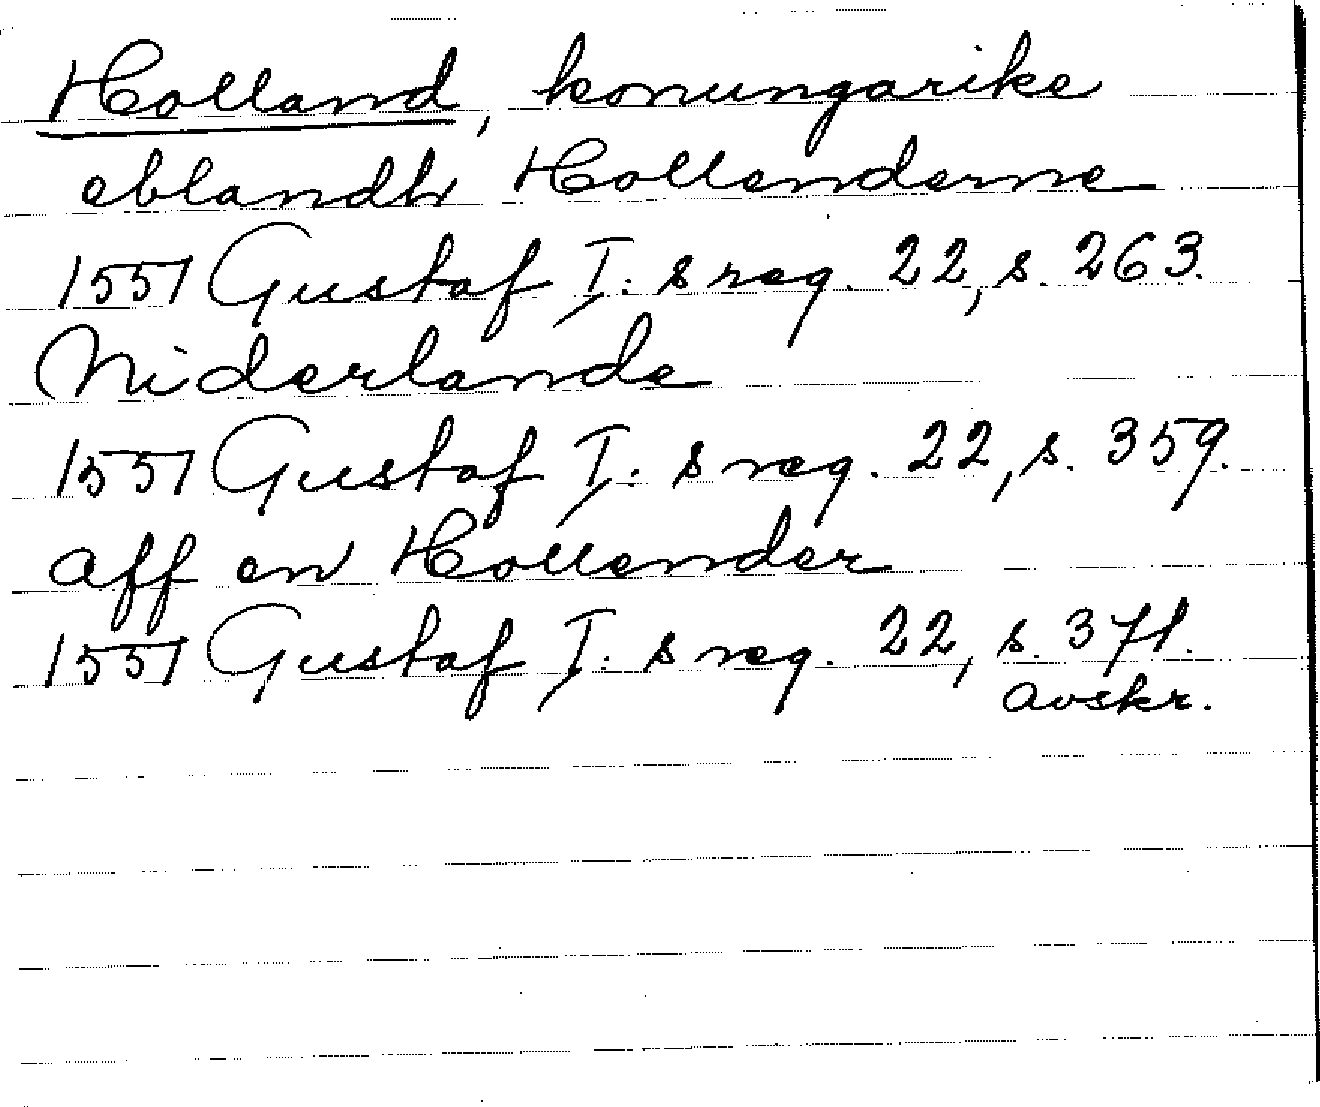 Holland, konungarike
eblandh Hollenderne
1551 Gustaf I: s reg. 22, s. 263.
Niderlande
1551 Gustaf I: s reg. 22, s. 359.
aff en Hollender
1551 Gustaf I: s reg. 22, s. 371.
avskr.